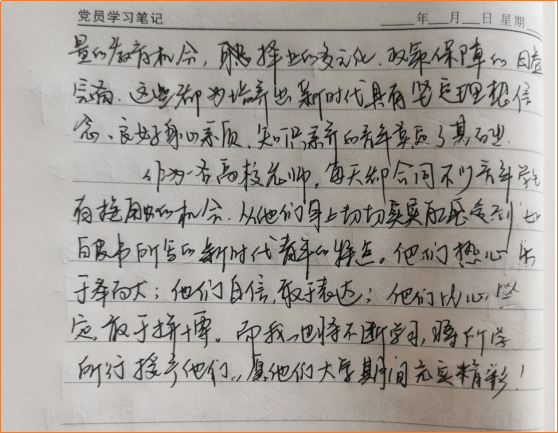 党员学习笔记 年 月 日 星期
量的教育机会，职择业的多元化，政策保障的日益
完善。这些都为培养出新时代具有坚定理想信
念、良好身心素质、知识素养的青年奠定了基石也。
作为一名高校老师，每天都会同不少青年学生
有接触的机会。从他们身上切切实实能感受到如
白皮书所写的新时代青年的特点。他们热心
于奉而大；他们自信，敢于表达；他们内心坚
定，敢于拼搏。而我也将不断学习，将所学
所行授予他们，愿他们大学期间充实精彩！